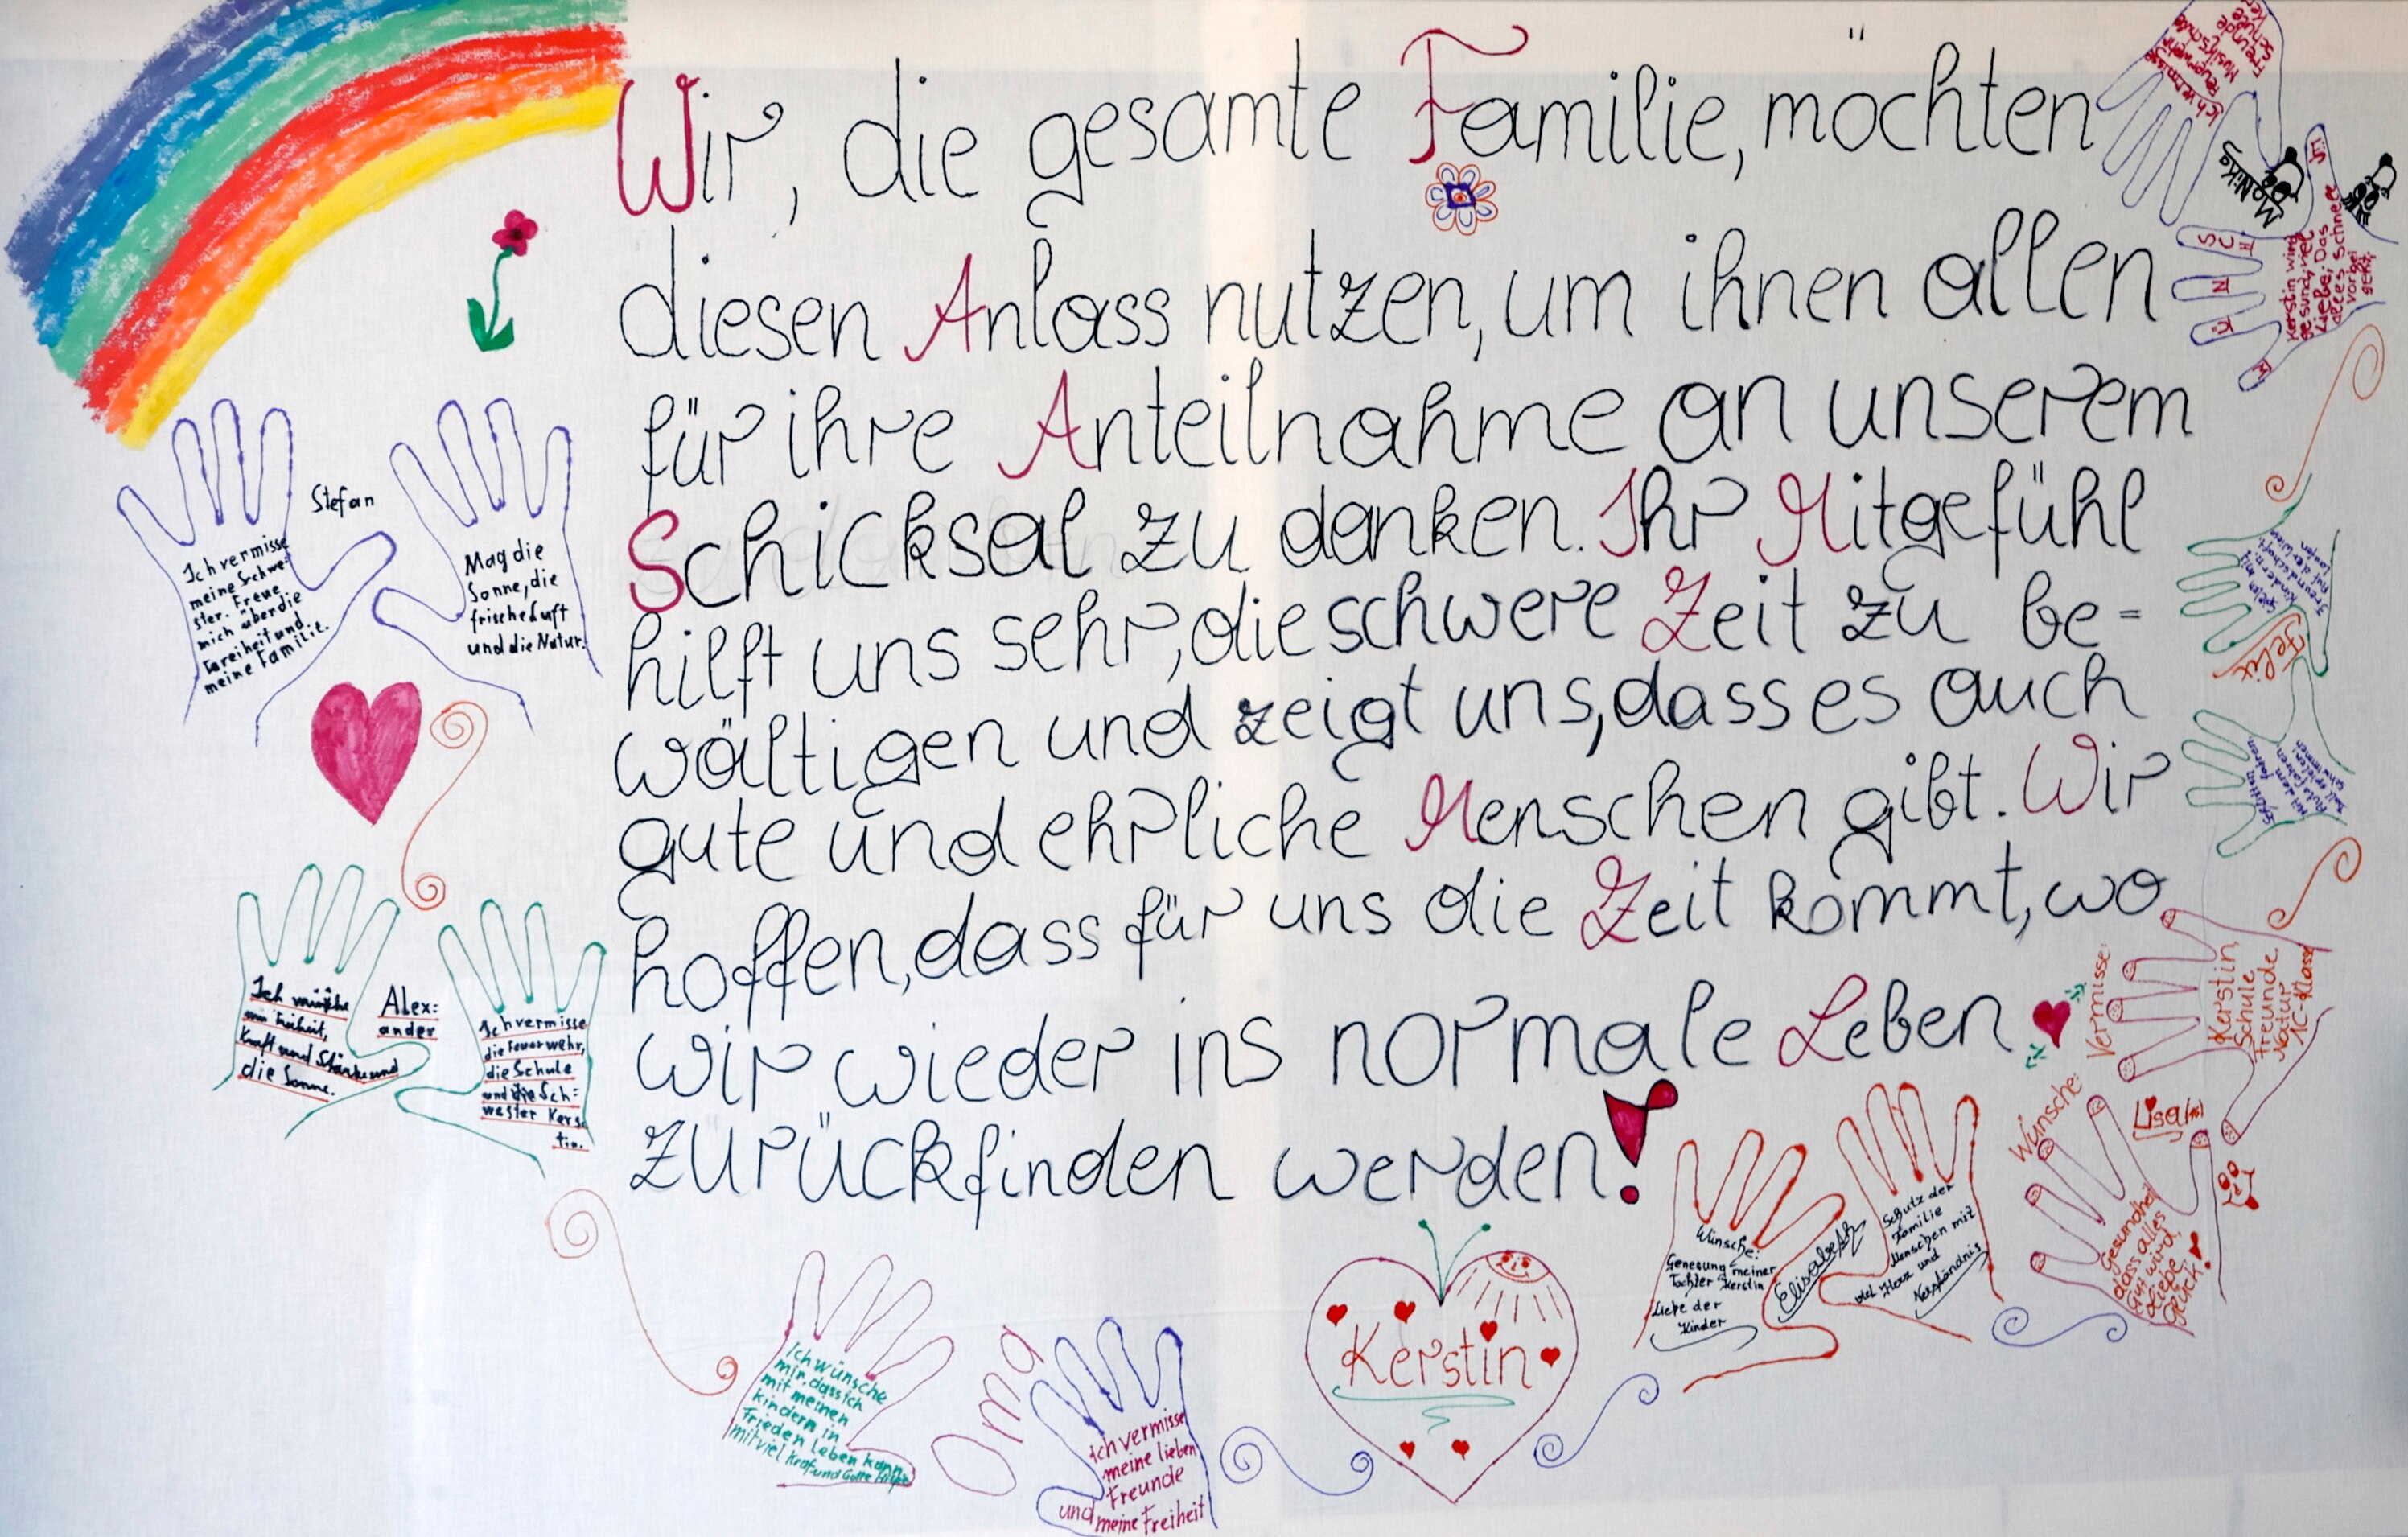 Wir, die gesamte Familie, möchten
diesen Anlass nutzen, um ihnen allen
für ihre Anteilnahme an unserem
Schicksal zu danken. Ihr Mitgefühl
hilft uns sehr, die schwere Zeit zu be=
wältigen und zeigt uns, dass es auch
gute und ehrliche Menschen gibt. Wir
hoffen, dass für uns die Zeit kommt, wo
wir wieder ins normale Leben
zurückfinden werden!
Stefan
Ich vermisse
meine Schwe=
ster. Freue
mich über die
Freiheit und
meine Familie.
Mag die
Sonne, die
frische Luft
und die Natur.
Ich
Freiheit,
Kraft und Stärke und
die Sonne.
Alex=
ander
Ich vermisse
die Feuerwehr,
die Schule
und die Sch=
wester Kers
tin.
Ich wünsche
mir, dass ich
mit meinen
kindern in
Frieden leben kann
mit viel Kraf und Gotte
Oma
Ich vermisse
meine lieben
Freunde
und meine Freiheit
Kerstin
Wünsche:
Genesung meiner
Tochter Kerstin
Liebe der
Kinder
Elisabeth
Schutz der
Familie
Menschen mit
viel Herz und
Verständnis
Wünsche:
Lisa
Gesundheit
dass alles
Gut wird,
Liebe
Glück!
Vermisse:
Kerstin,
Schule
Freunde
Natur
1C-Klasse
Felix
Ich vermisse
Feuerwehr
Musikschule
Freunde
Schule
MONIKA
S C H
N
K
Kerstin wird
gesund, viel
Liebe, Das
alles Schnell
vorbei
geht,